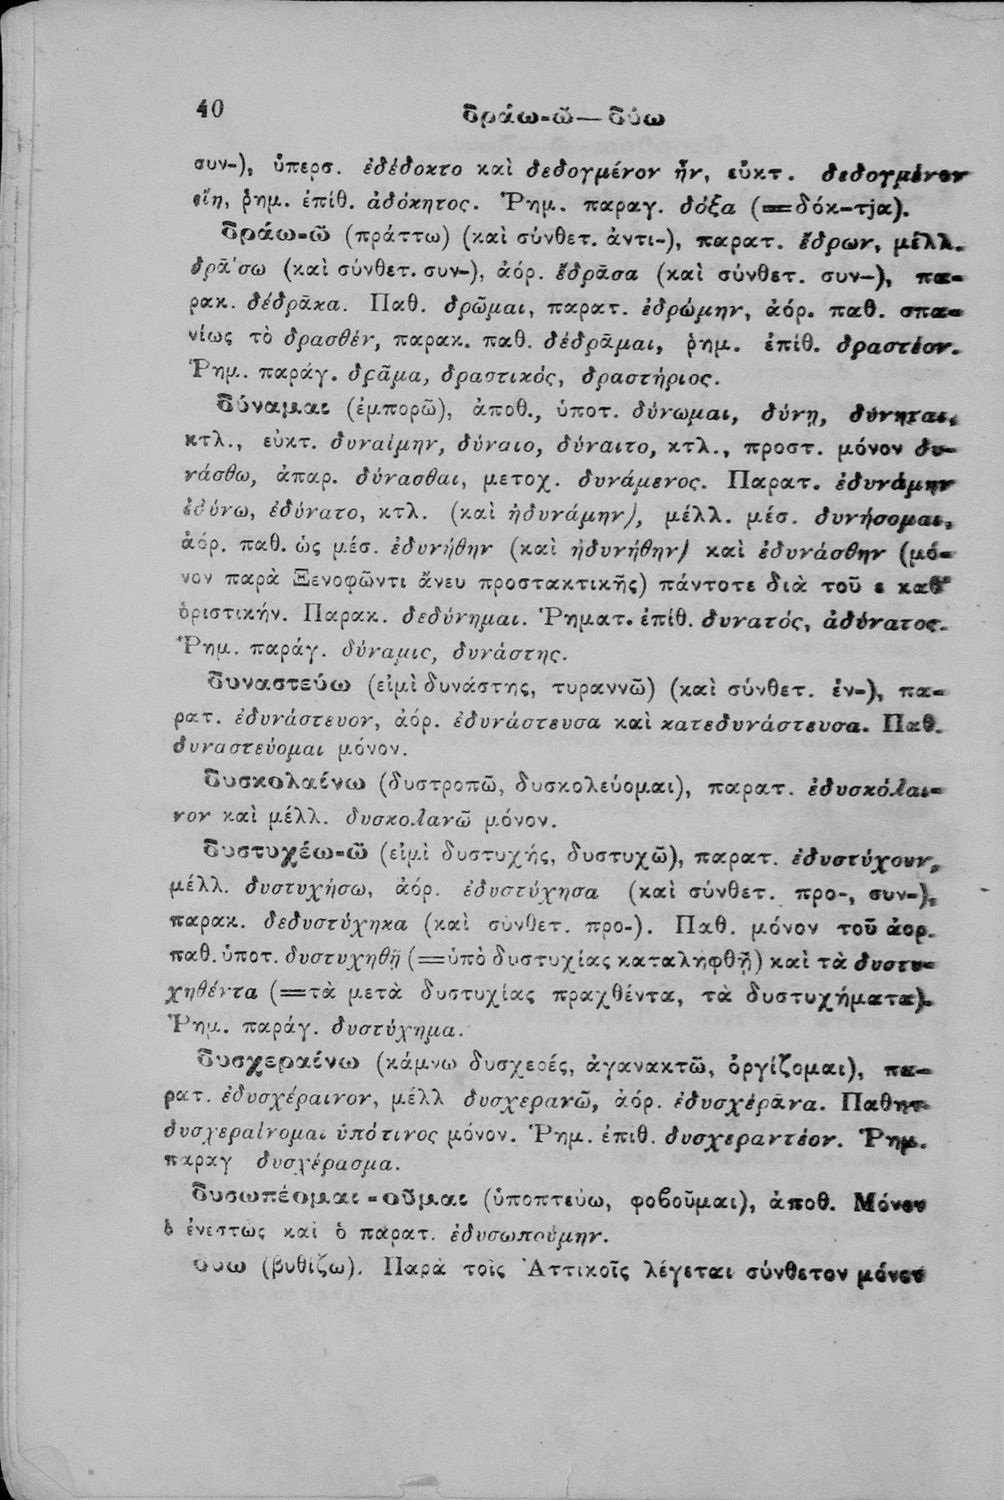 40
δράω-ῶ— δύω
συν-), ὑπερσ. ἐδέδοκτο καὶ δεδογμένον ἦν, εὐκτ. δεδογμένον
εἴη, ῥημ. ἐπίθ. ἀδόκητος. Ῥημ. παραγ. δόξα (=δόκ-τjα).
δράω-ῶ (πράττω) (καὶ σύνθετ. ἀντι-), παρατ. ἔδρων, μέλλ.
δρᾱ́σω (καὶ σύνθετ. συν-), ἀόρ. ἔδρᾱσα (καὶ σύνθετ. συν-), πα-
ρακ. δέδρᾱκα. Παθ. δρῶμαι, παρατ. ἐδρώμην, ἀόρ. παθ. σπα-
νίως τὸ δρασθέν, παρακ. παθ. δέδρᾱμαι, ῥημ. ἐπίθ. δραστέον.
Ῥημ. παράγ. δρᾶμα, δραστικός, δραστήριος.
δύναμαι (ἐμπορῶ), ἀποθ., ὑποτ. δύνωμαι, δύνῃ, δύνηται,
κτλ., εὐκτ. δυναίμην, δύναιο, δύναιτο, κτλ., προστ. μόνον δυ-
νάσθω, ἀπαρ. δύνασθαι, μετοχ. δυνάμενος. Παρατ. ἐδυνάμην
ἐδύνω, ἐδύνατο, κτλ. (καὶ ἠδυνάμην), μέλλ. μέσ. δυνήσομαι,
ἀόρ. παθ. ὡς μέσ. ἐδυνήθην (καὶ ἠδυνήθην) καὶ ἐδυνάσθην (μό-
νον παρὰ Ξενοφῶντι ἄνευ προστακτικῆς) πάντοτε διὰ τοῦ ε καθ'
ὁριστικήν. Παρακ. δεδύνημαι. Ῥηματ. ἐπίθ. δυνατός, ἀδύνατος.
Ῥημ. παράγ. δύναμις, δυνάστης.
δυναστεύω (εἰμὶ δυνάστης, τυραννῶ) (καὶ σύνθετ. ἐν-), πα-
ρατ. ἐδυνάστευον, ἀόρ. ἐδυνάστευσα καὶ κατεδυνάστευσα. Παθ.
δυναστεύομαι μόνον.
δυσκολαίνω (δυστροπῶ, δυσκολεύομαι), παρατ. ἐδυσκόλαι-
νον καὶ μέλλ. δυσκολανῶ μόνον.
δυστυχέω-ῶ (εἰμὶ δυστυχής, δυστυχῶ), παρατ. ἐδυστύχουν,
μέλλ. δυστυχήσω, ἀόρ. ἐδυστύχησα (καὶ σύνθετ. προ-, συν-),
παρακ. δεδυστύχηκα (καὶ σύνθετ. προ-). Παθ. μόνον τοῦ ἀορ.
παθ. ὑποτ. δυστυχηθῇ (=ὑπὸ δυστυχίας καταληφθῇ) καὶ τὰ δυστυ-
χηθέντα (=τὰ μετὰ δυστυχίας πραχθέντα, τὰ δυστυχήματα).
Ῥημ. παράγ. δυστύχημα.
δυσχεραίνω (κάμνω δυσχερές, ἀγανακτῶ, ὀργίζομαι), πα-
ρατ. ἐδυσχέραινον, μέλλ δυσχερανῶ, ἀόρ. ἐδυσχέρᾱνα. Παθητ.
δυσχεραίνομαι ὑπότινος μόνον. Ῥημ. ἐπιθ. δυσχεραντέον. Ῥημ.
παραγ δυσχέρασμα.
δυσωπέομαι - οῦμαι (ὑποπτεύω, φοβοῦμαι), ἀποθ. Μόνον
ὁ ἐνεστὼς καὶ ὁ παρατ. ἐδυσωπούμην.
δύω (βυθίζω). Παρὰ τοῖς Ἀττικοῖς λέγεται σύνθετον μόνον